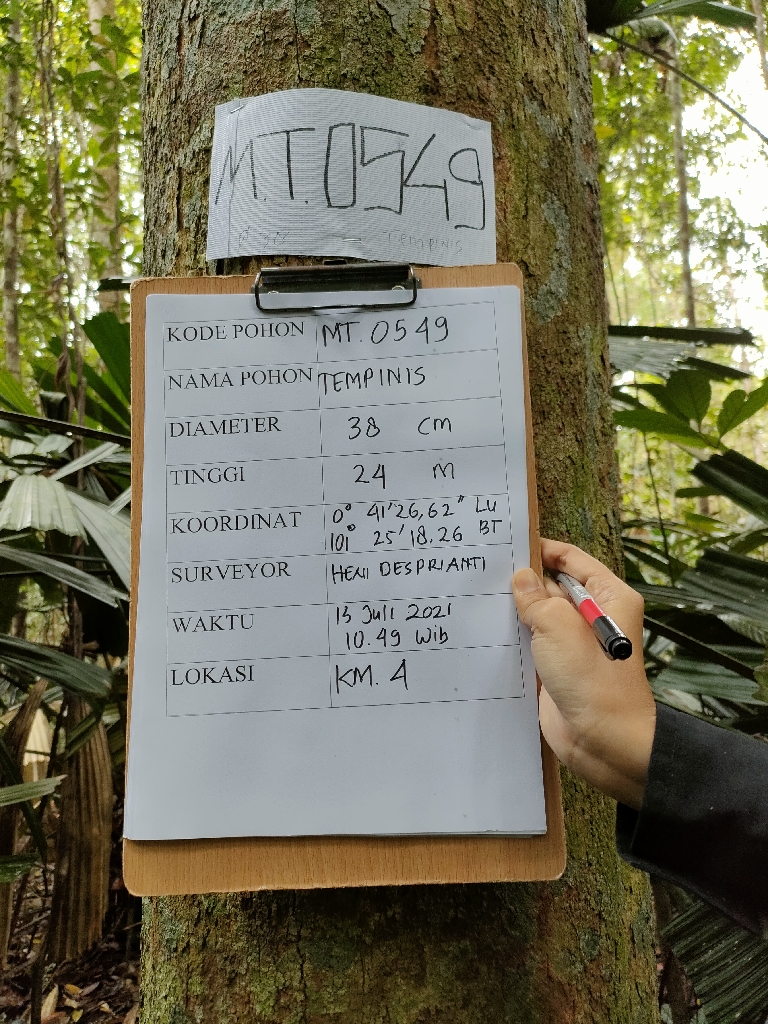 M.T.0549
TEMPINIS
KODE POHON MT. 0549
NAMA POHON TEMPINIS
DIAMETER 38 cm
TINGGI 24 m
KOORDINAT 0° 41'26,62" LU
101° 25'18.26 BT
SURVEYOR HENI DESPRIANTI
WAKTU 15 Juli 2021
10.49 Wib
LOKASI KM. 4